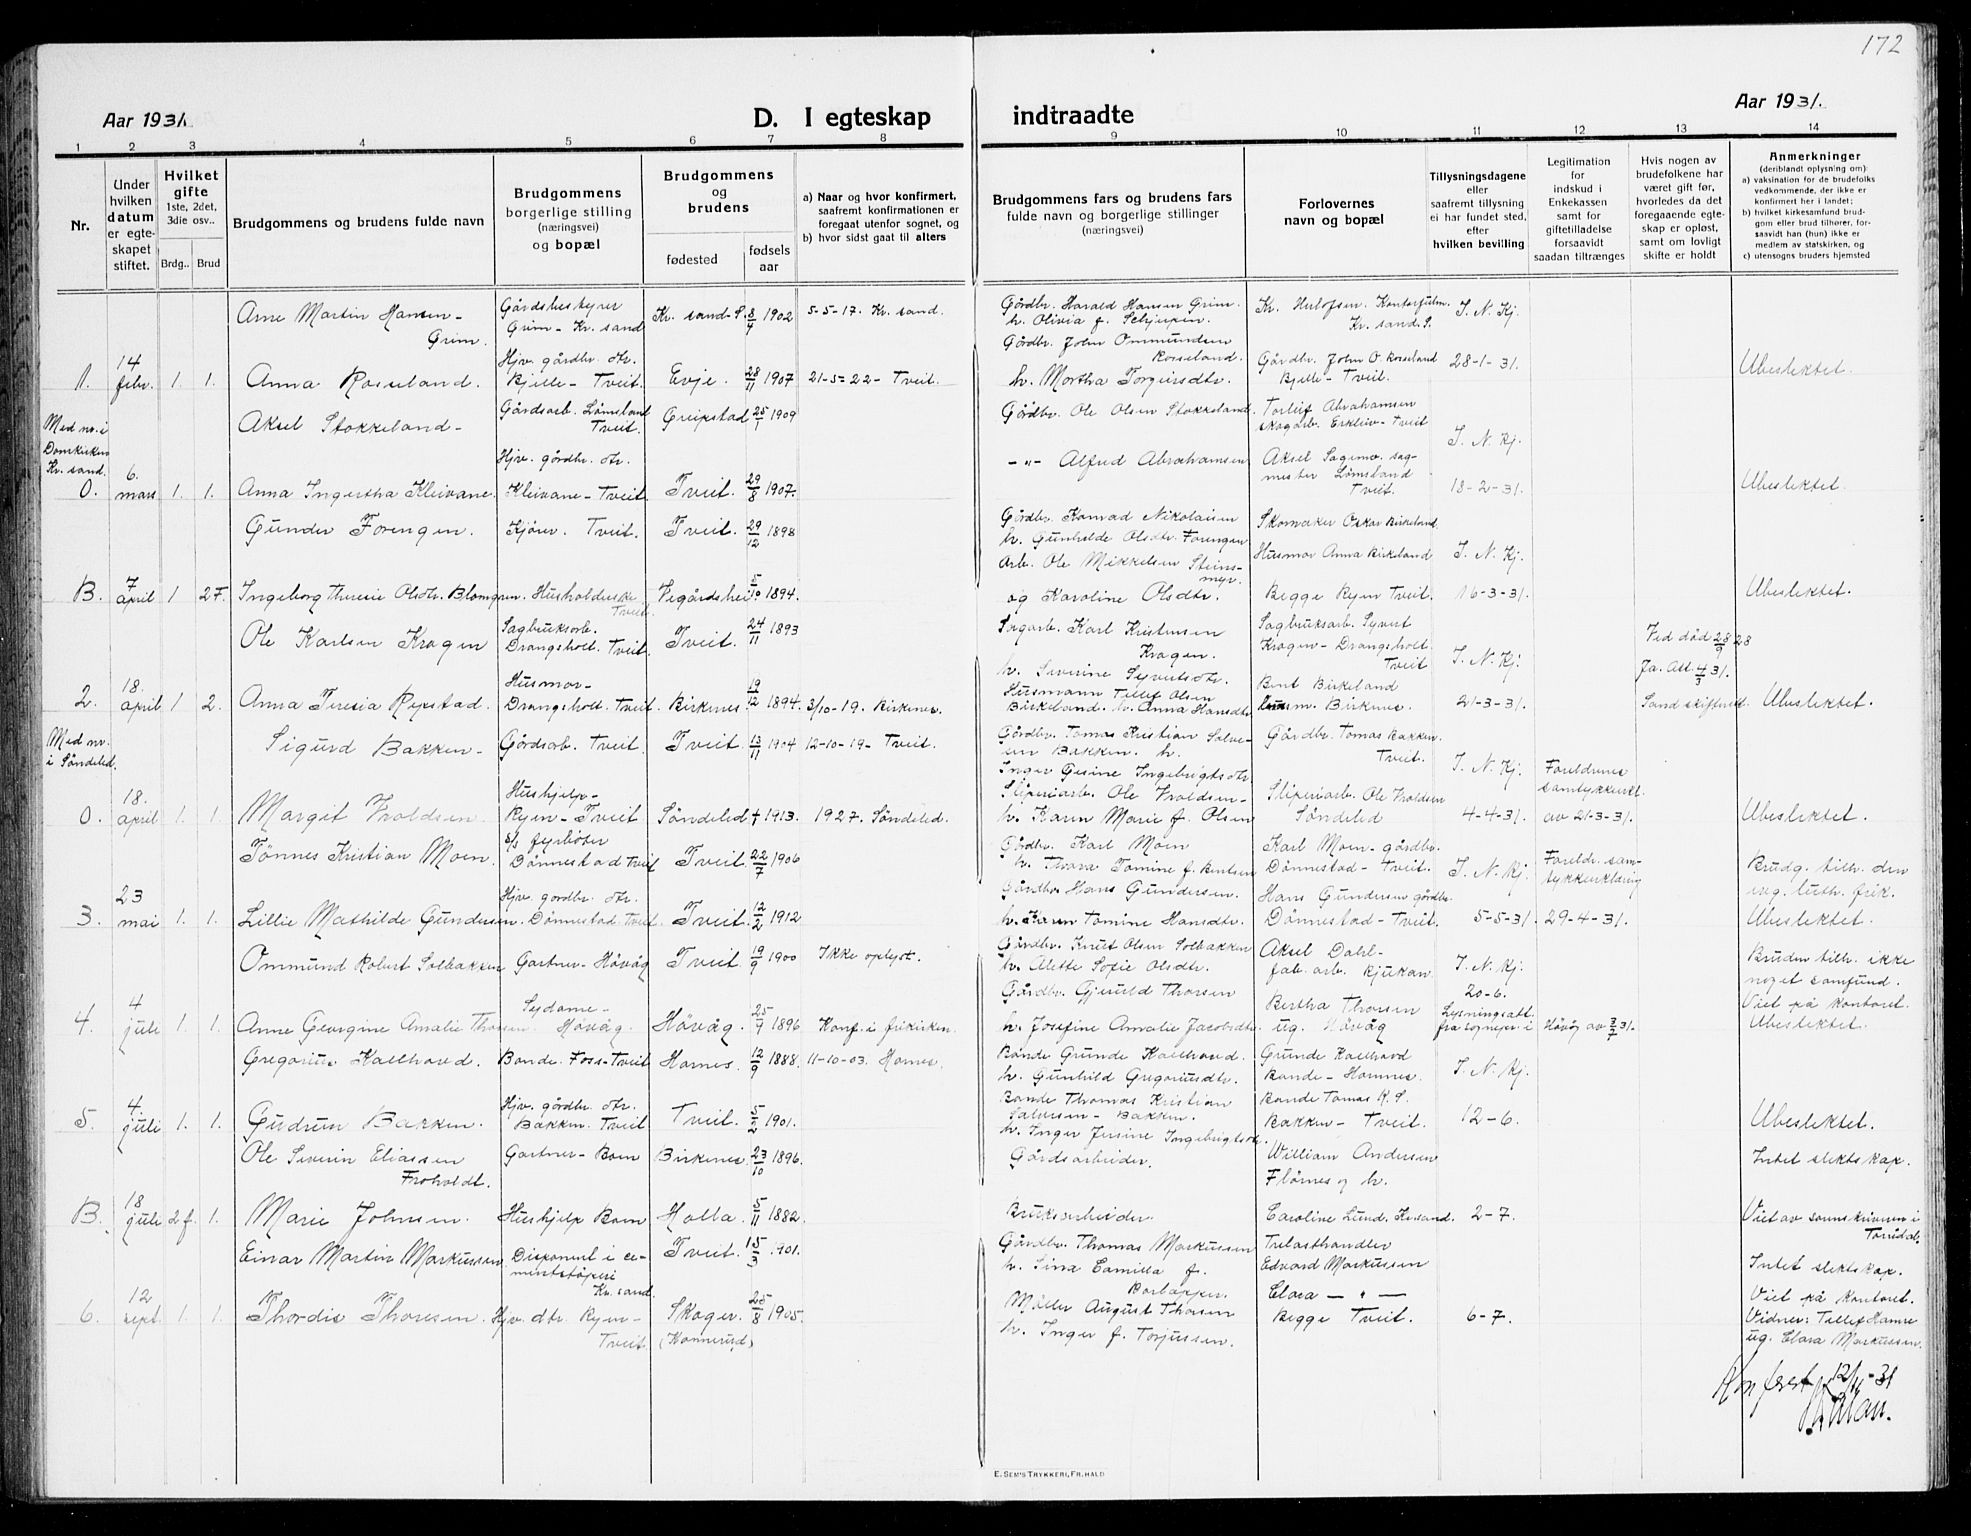 172
Aar 1931.
D. I egteskap
indtraadte
Aar 1931.
1 2 3 4 5 6 7 8 9 10 11 12 13 14
Nr.
Under
hvilken
datum
er egte-
skapet
stiftet.
Hvilket
gifte
1ste, 2det,
3die osv..
Brdg.. Brud
Brudgommens og brudens fulde navn
Brudgommens
borgerlige stilling
(næringsvei)
og bopæl
Brudgommens
og
brudens
fødested
fødsels
aar
a) Naar og hvor konfirmert,
saafremt konfirmationen er
foregaat utenfor sognet, og
b) hvor sidst gaat til alters
Brudgommens fars og brudens fars
fulde navn og borgerlige stillinger
(næringsvei)
Forlovernes
navn og bopæl
Tillysningsdagene
eller
saafremt tillysning
ei har fundet sted,
efter
hvilken bevilling
Legitimation
for
indskud i
Enkekassen
samt for
giftetilladelse
forsaavidt
saadan tiltrænges
Hvis nogen av
brudefolkene har
været gift før,
hvorledes da det
foregaaende egte-
skap er opløst,
samt om lovligt
skifte er holdt
Anmerkninger
(deriblandt oplysning om:
a) vaksination for de brudefolks
vedkommende, der ikke er
konfirmert her i landet;
b) hvilket kirkesamfund brud-
gom eller brud tilhører, for-
saavidt han (hun) ikke er
medlem av statskirken, og
c) utensogns bruders hjemsted
Arne Martin Hansen -
Grim.
Gårdsbestyrer
Grim - Kr. sand
Kr. sand S. 8/4 1902
5-5-17. Kr. sand.
Gårdbr. Harald Hansen Grim.
h. Olivia f.
Kr. sand. S.
I. N. Kj.
1. 14 febr. 1. 1.
Anna Rosseland.
Hjv. gårdbr. dtr.
Kjelle - Tveit.
Evje. 28/11 1907
21-5-22 - Tveit.
Gårdbr. John Ommundsen
Rosseland.
h. Martha Torgiusdtr.
Gårdbr. John O. Rosseland
Kjelle - Tveit.
28-1-31.
Ubeslektet.
Med nr. i
Domkirken
Kr. sand.
Aksel Stokkeland -
Gårdsarb. Lømsland
Tveit.
Greipstad 25/1 1909
Gårdbr. Ole Olsen Stokkeland.
Torleif Abrahamsen
skogarb. - Tveit
I. N. Kj.
0. 6. mars 1. 1.
Anna Ingertha Kleivane.
Hjv. gårdbr. dtr.
Kleivane - Tveit.
Tveit. 29/8 1907.
- " - Alfred Abrahamsen
Aksel Sagemo. sag-
mester Lømsland
Tveit.
18-2-31.
Ubeslektet.
Gunder Forengen.
Kjører. Tveit.
Tveit. 29/12 1898
Gårdbr. Konrad Nikolaisen
h. Gunhilde Olsdtr. Forengen
Skomaker Oskar Birkeland
Husmor Anna Birkeland
I. N. Kj.
B. 7 april 1 2 F.
Ingeborg Theresie Olsdtr. Blomgren.
Husholderske
Tveit.
Vegårdshei 5/10 1894.
Arb. Ole Mikkelsen Steins-
myr.
og Karoline Olsdtr.
Begge Ryen Tveit.
16-3-31.
Ubeslektet.
Ole Karlsen Kragen
Sagbruksarb.
Drangsholt. Tveit.
Tveit. 24/11 1893
Sagarb. Karl Kristensen
Kragen.
h. Severine Syvertsdtr.
Sagbruksarb. Syvert
Kragen - Drangsholt.
Tveit
I. N. Kj.
Ved død 28/9 28
Ja. Att. 4/3 31.
2. 18. april 1 2.
Anna Teresia Rypstad.
Husmor -
Drangsholt. Tveit.
Birkenes 19/12 1894.
3/10-19. Birkenes.
Husmann Tellef Olsen
Birkeland. h. Anna Hansdtr.
Bent Birkeland
Birkenes.
21-3-31.
Ubeslektet.
Med nr.
i Søndeled.
Sigurd Bakken -
Gårdsarb. Tveit.
Tveit. 13/11 1904
12-10-19 - Tveit.
Gårdbr. Tomas Kristian Salve-
sen Bakken. h.
Inger Gesine Ingebrigtsdtr.
Gårdbr. Tomas Bakken.
Tveit.
I. N. Kj.
Foreldrenes
samtykkeerkl.
0. 18. april 1. 1.
Margit Vroldsen.
Hushjelp -
Ryen - Tveit
Søndeled 1913.
1927. Søndeled.
Sliperiarb. Ole Vroldsen -
h. Karen Marie f. Olsen
Sliperiarb. Ole Vroldsen
Søndeled
4-4-31.
av 21-3-31.
Ubeslektet.
Tønnes Kristian Moen.
s/s fyrbøter
Dønnestad Tveit
Tveit. 22/7 1906
Gårdbr. Karl Moen
h. Thora Tomine f. Bentsen
Karl Moen - gårdbr.
Dønnestad - Tveit.
I. N. Kj.
Foreldr. sam-
tykkeerklæring
Brudg. tilh. den
ev. luth. frik.
3. 23 mai 1. 1.
Lillie Mathilde Gundersen.
Hjv. gårdbr. dtr.
Dønnestad Tveit.
Tveit. 12/2 1912
Gårdbr. Hans Gundersen.
h. Karen Tomine Hansdtr.
Hans Gundersen gårdbr.
Dønnestad - Tveit.
5-5-31.
29-4-31.
Ubeslektet.
Ommund Robert Solbakken
Gartner - Høvåg
Tveit. 19/9 1900
Ikke oplyst.
Gårdbr. Knut Olsen Solbakken
h. Alette Sofie Olsdtr.
Aksel Dahl -
fab. arb. Rjukan
I. N. Kj.
Bruden tilh. ikke
noget samfund.
Viet på kontoret.
4. 4 juli 1. 1.
Anne Georgine Amalie Thorsen
Sydame -
Høvåg.
Høvåg. 25/9 1896
Konf. i frikirken.
Gårdbr. Thorsen
h. Josefine Amalie Jacobsdtr.
Bertha Thorsen
ug. Høvåg
20-6.
Lysningsatt.
fra sognepr. i
Høvåg av 3/7 31.
Ubeslektet.
Gregorius Kallhovd.
Bonde. Foss - Tveit
Hornes. 12/9 1888.
11-10-03. Hornes.
Bonde Grunde Kallhovd.
h. Gunhild Gregoriusdtr.
Grunde Kallhovd
Bonde - Hornnes.
I. N. Kj.
5. 4. juli 1. 1.
Gudrun Bakken.
Hjv. gårdbr. dtr.
Bakken. Tveit
Tveit. 5/2 1901.
Bonde Thomas Kristian
Salvesen - Bakken.
h. Inger Jesine Ingebrigtsdtr.
Bonde Tomas K. S.
Bakken - Tveit.
12-6.
Ubeslektet.
Ole Severin Eliassen
Froholdt.
Gartner - Boen
Birkenes 23/10 1896.
Gårdsarbeider.
William Andersen
Flørnes og h.
Intet slektskap.
B. 18 juli 2 f. 1.
Marie Johnsen.
Hushjelp Boen
Holla. 5/11 1882.
Bruksarbeider
Caroline Lund. Kr.sand.
2-7.
Viet av sorenskriveren i
Torridal.
Einar Martin Markussen
Disponent i ce-
mentstøperi
Kr. sand.
Tveit. 15/3 1901.
Gårdbr. Thomas Markussen
h. Sina Camilla f.
Trelasthandler
Edvard Markussen
Intet slektskap.
6. 12 sept. 1. 1.
Thordis Thorsen.
Hjv. dtr. Ryen -
Tveit.
Skoger. 25/8 1905.
(Konnerud)
Møller August Thorsen
h. Inger f. Torjussen.
Clara - " -
Begge Tveit.
6-7.
Viet på kontoret.
Vidner: Tellef Hamre
ug. Clara Markussen.
Konferert 12/11-31
E. SEM'S TRYKKERI, FR.HALD